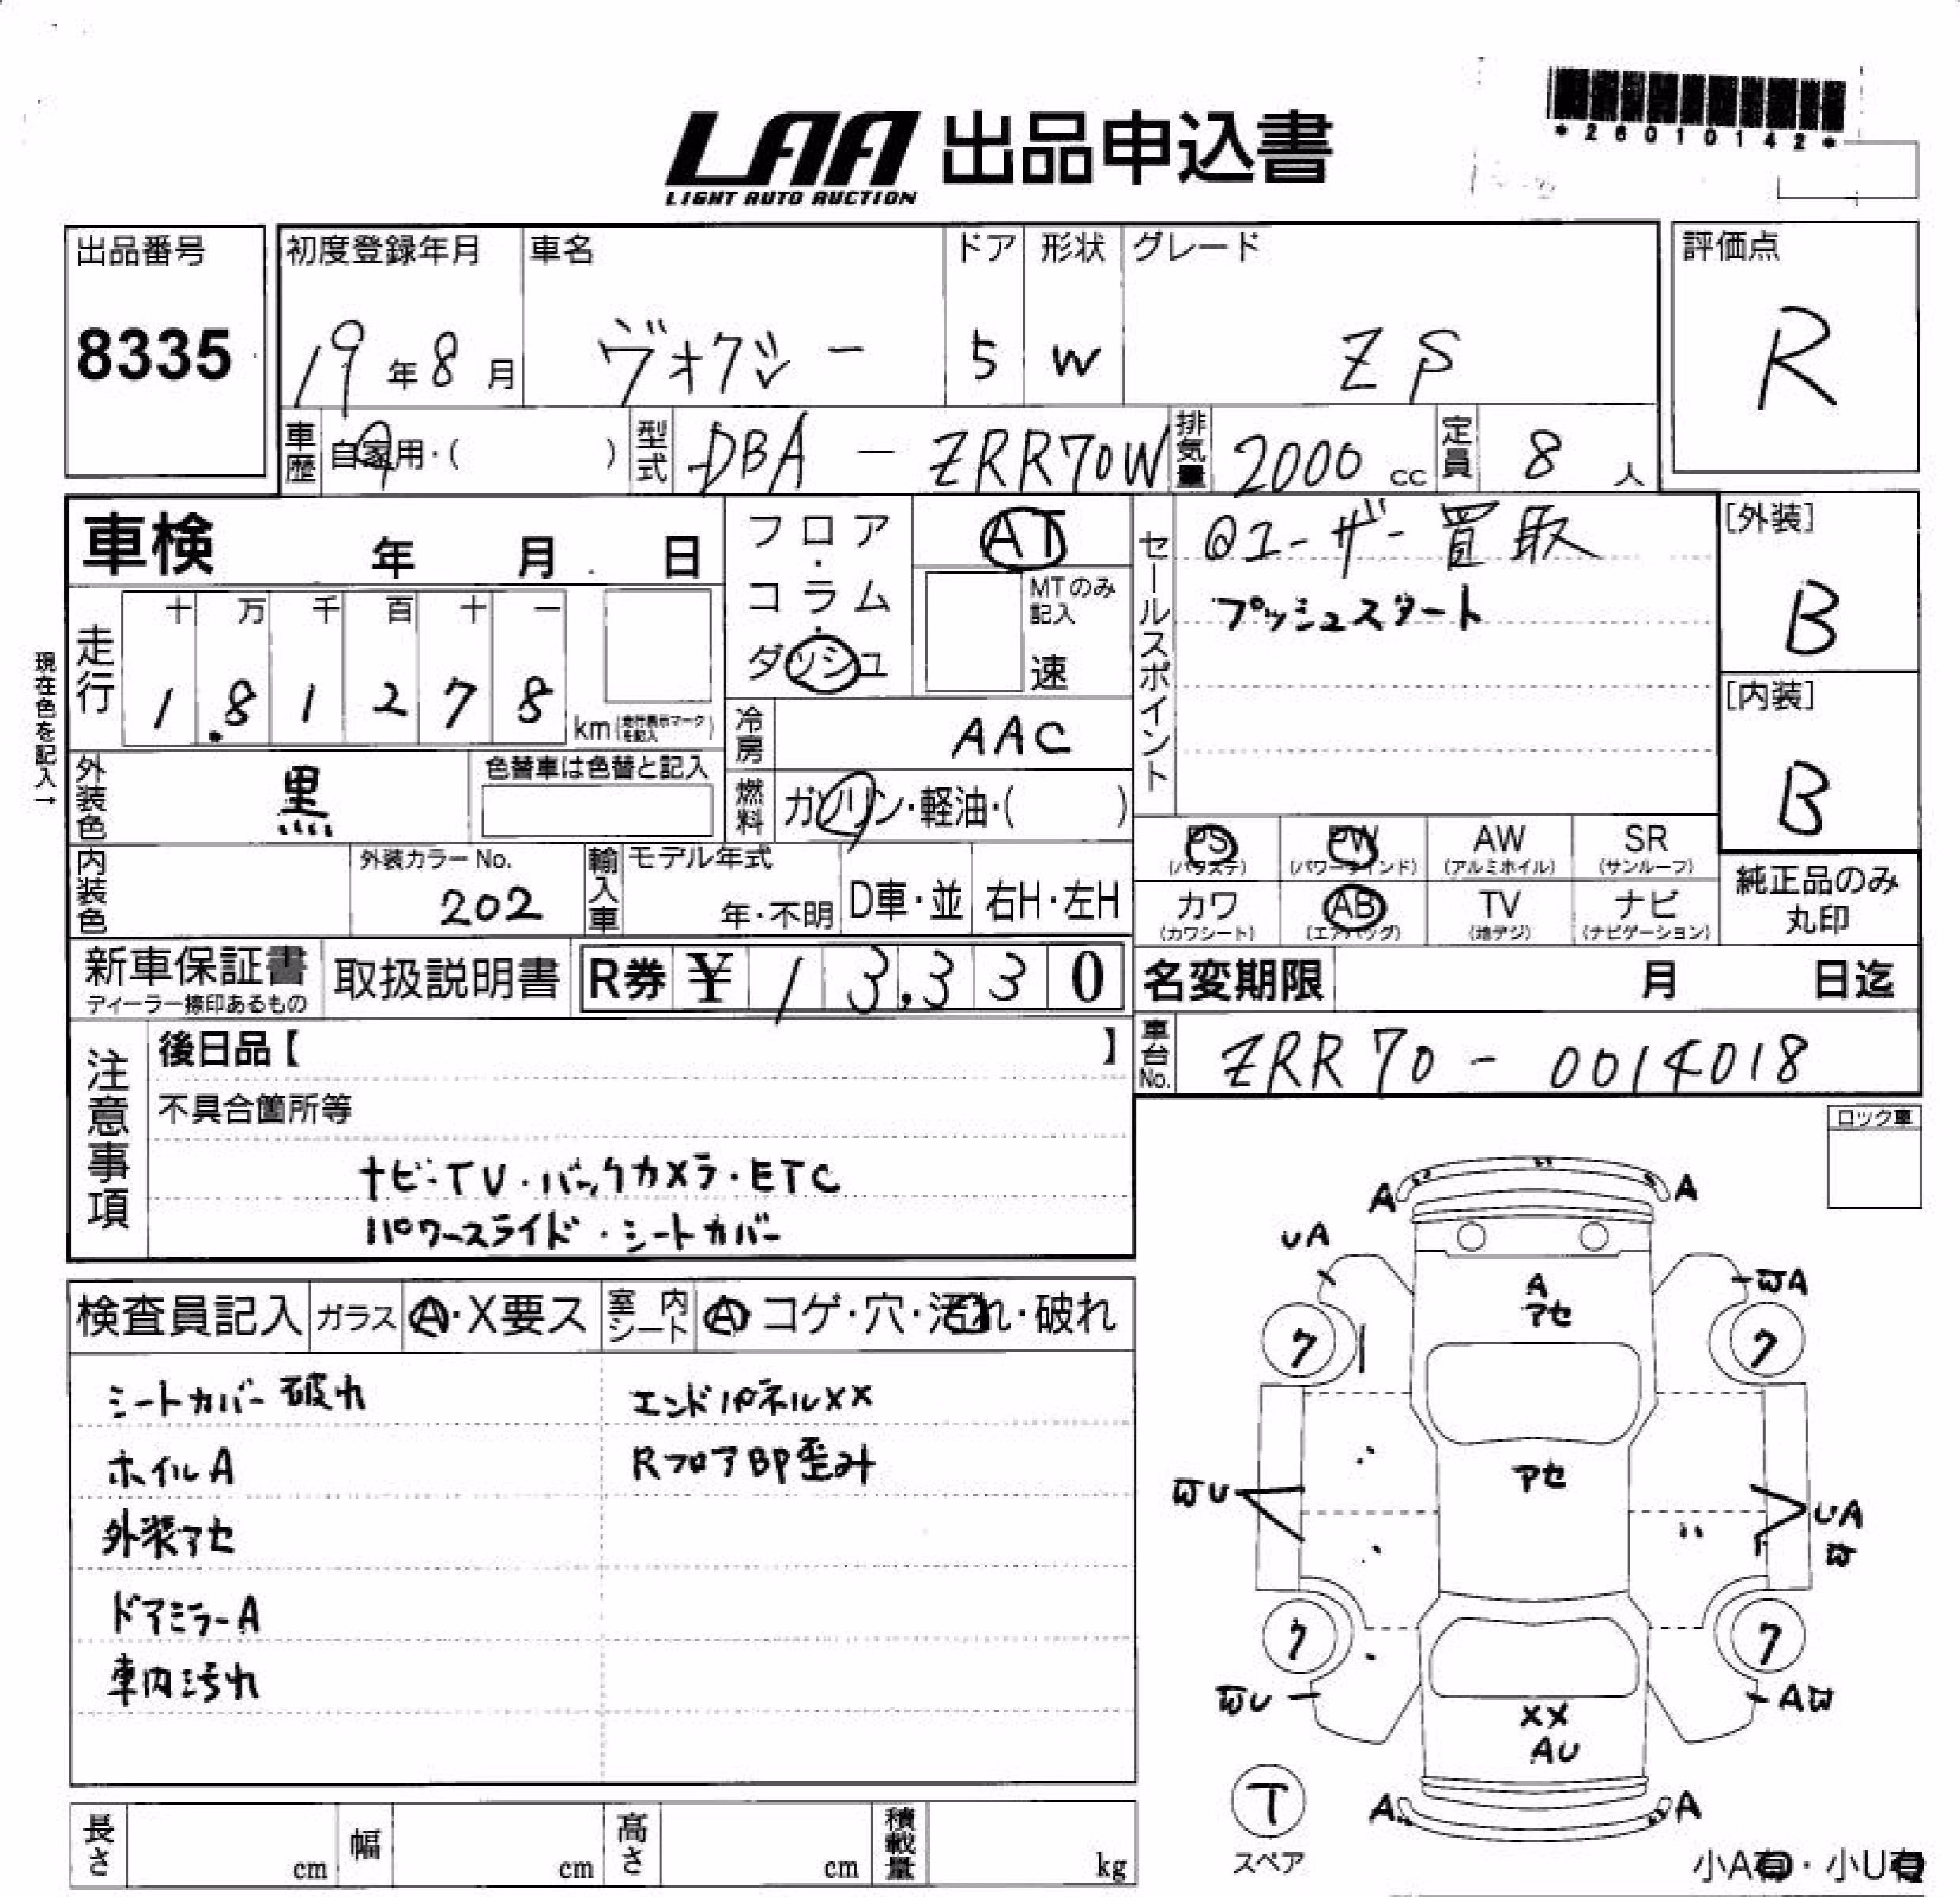 *26010142*
LAA 出品申込書
LIGHT AUTO AUCTION
出品番号
8335
初度登録年月
19年8月
車名
ヴォクシー
ドア
5
形状
W
グレード
ZS
評価点
R
車歴
自家用・( )
型式
DBA - ZRR70W
排気量
2000 cc
定員
8 人
車検 年 月 日
フロア・コラム・ダッシュ
AT
MTのみ記入
速
セールスポイント
@ユーザー買取
プッシュスタート
[外装]
B
[内装]
B
現在色を記入→
走行
十 万 千 百 十 一
1.8 1 2 7 8
km(走行表示マークを記入)
冷房
AAC
燃料
ガソリン・軽油・( )
外装色
黒
色替車は色替と記入
内装色
外装カラーNo.
202
輸入車
モデル年式
年・不明
D車・並
右H・左H
PS AW SR
(パワステ) (パワーウインド) (アルミホイル) (サンルーフ)
PW
カワ AB TV ナビ
(カワシート) (エアバッグ) (地デジ) (ナビゲーション)
純正品のみ
丸印
新車保証書
ディーラー捺印あるもの
取扱説明書
R券 ¥ 13,330
名変期限 月 日迄
注意事項
後日品【 】
車台No.
ZRR70 - 0014018
不具合箇所等
ナビ・TV・バックカメラ・ETC
パワースライド・シートカバー
ロック車
検査員記入
ガラス
A・X要ス
室内シート
A コゲ・穴・汚れ・破れ
シートカバー破れ
エンドパネルXX
ホイルA
RフロアBP歪み
外装アセ
ドアミラーA
車内汚れ
A A
UA
A
アセ
A
ク ク
アセ
U
UA
ク ク
U
A
XX
AU
A A
T
スペア
長さ cm
幅 cm
高さ cm
積載量 kg
小A有・小U有